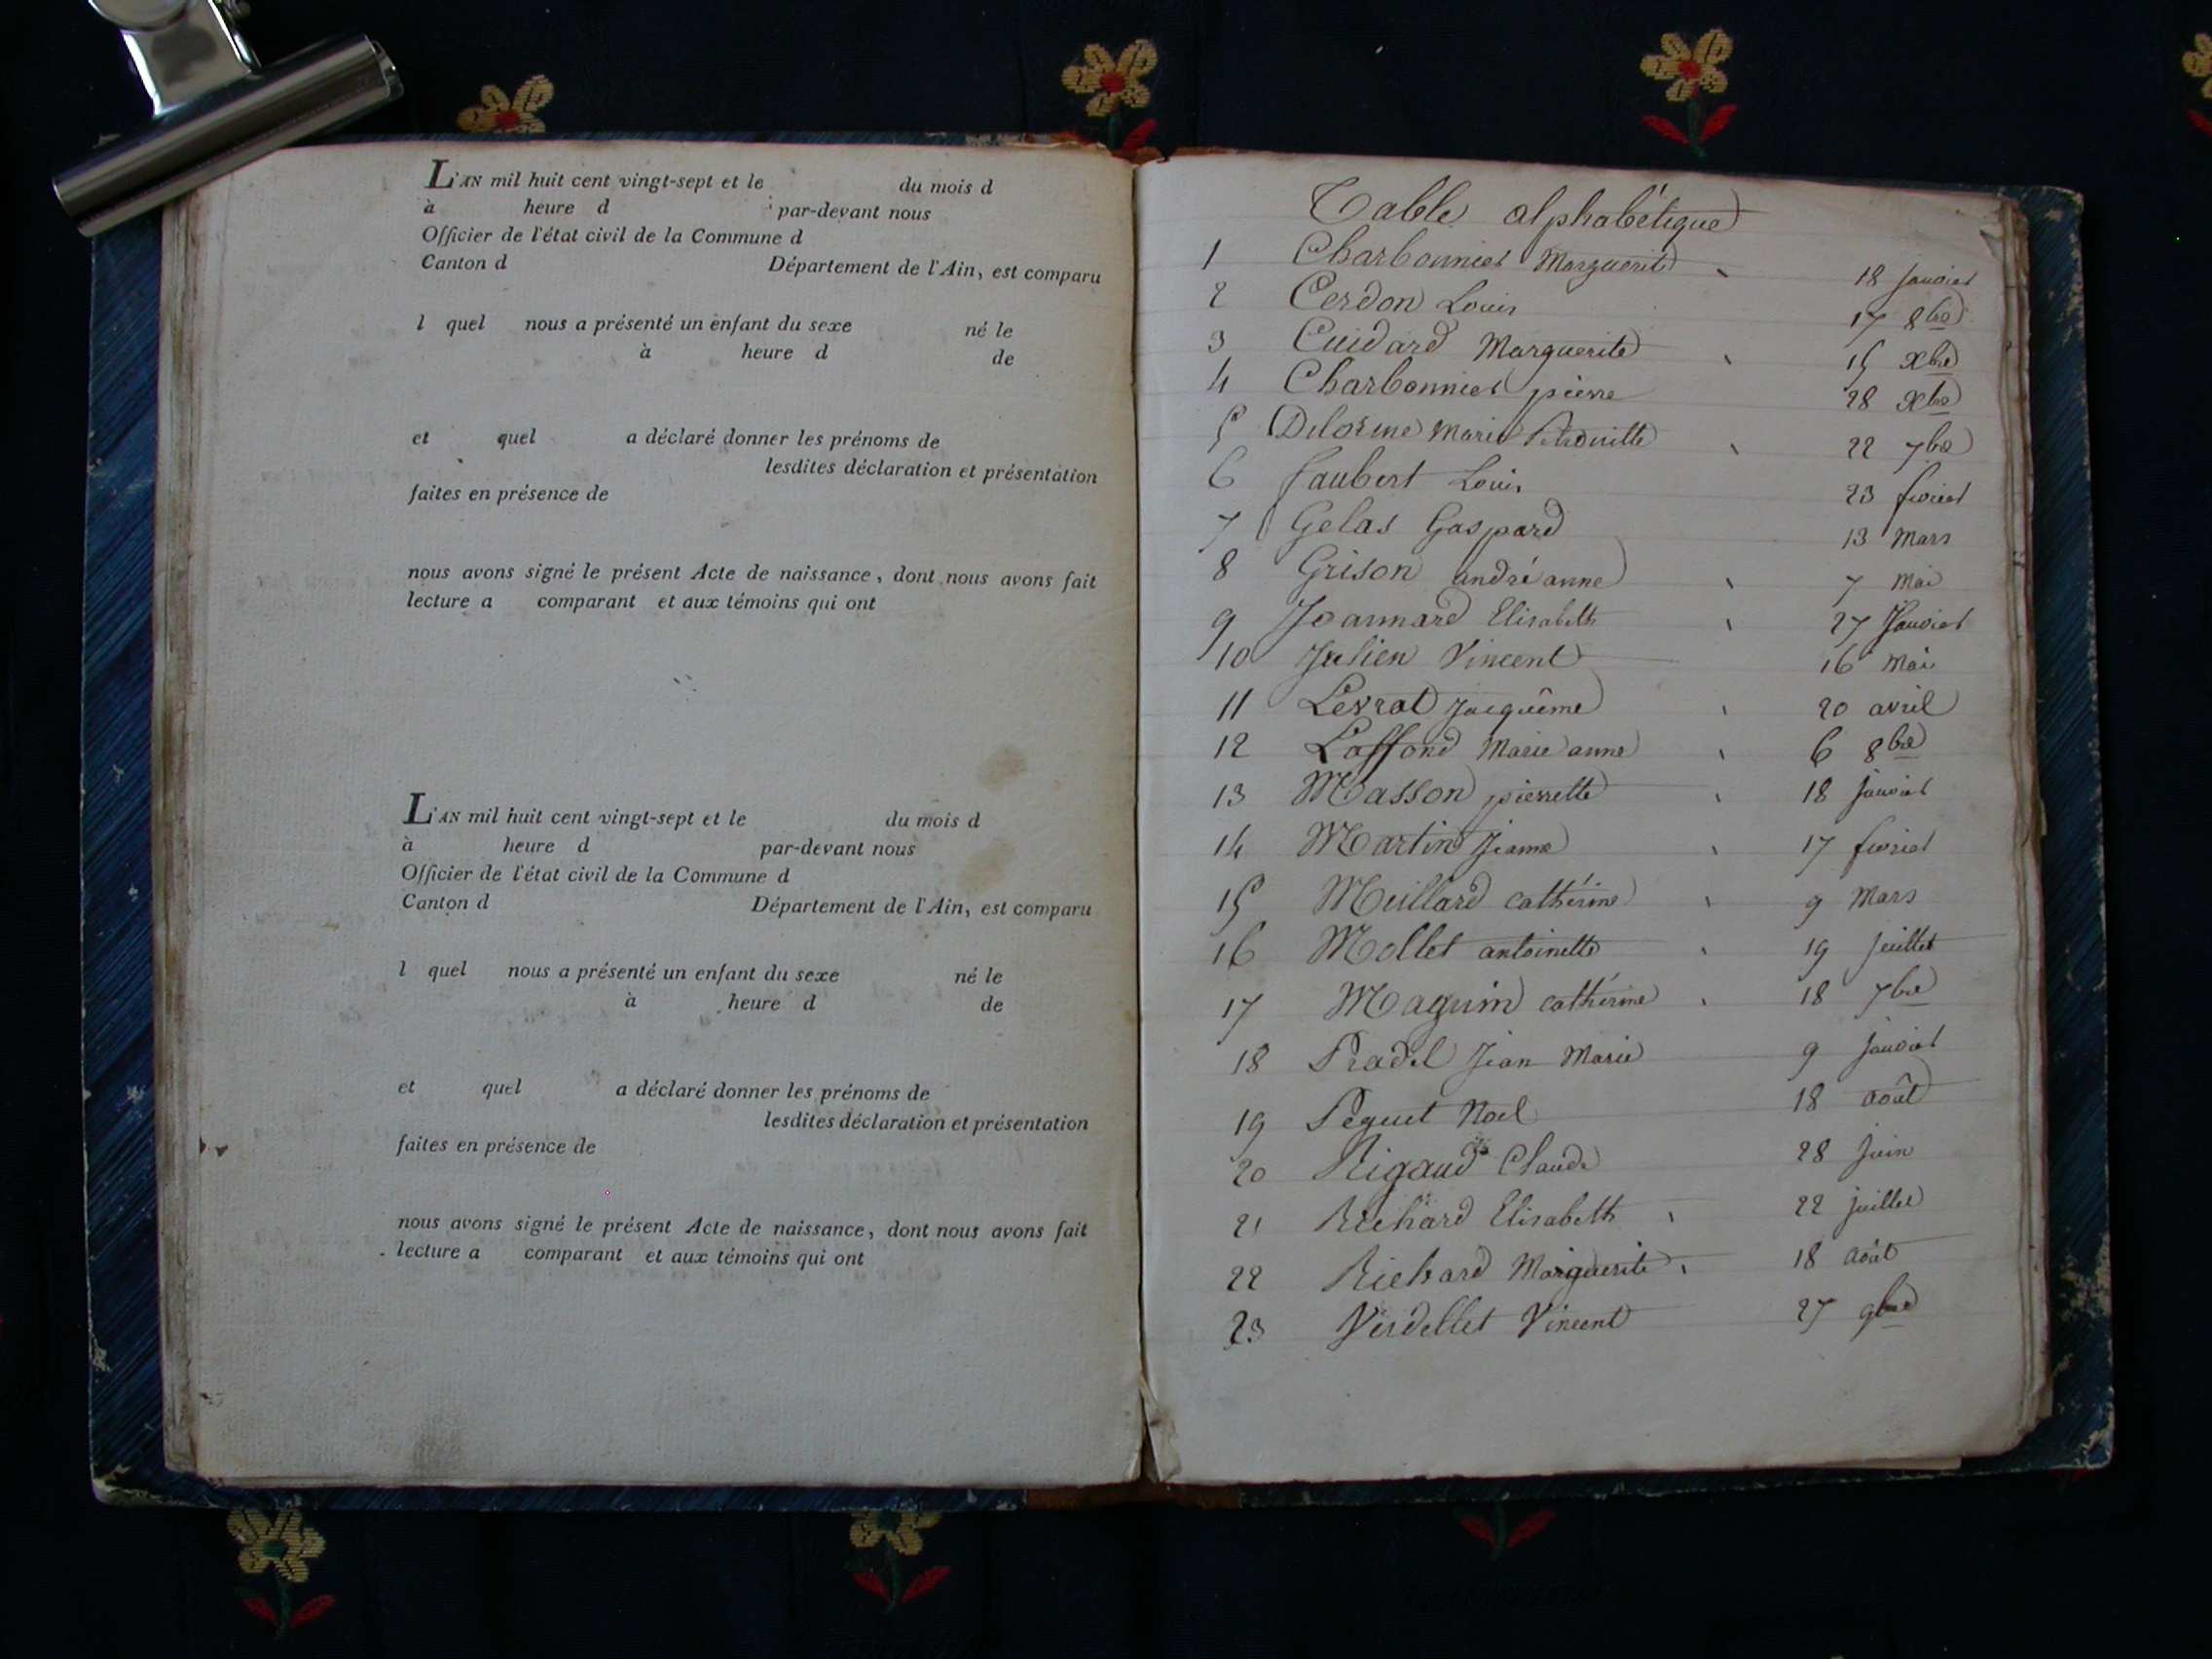 L'AN mil huit cent vingt-sept et le du mois d
à heure d par-devant nous
Officier de l'état civil de la Commune d
Canton d Département de l'Ain, est comparu
l quel nous a présenté un enfant du sexe né le
à heure d de
et quel a déclaré donner les prénoms de
lesdites déclaration et présentation
faites en présence de
nous avons signé le présent Acte de naissance, dont nous avons fait
lecture a comparant et aux témoins qui ont
L'AN mil huit cent vingt-sept et le du mois d
à heure d par-devant nous
Officier de l'état civil de la Commune d
Canton d Département de l'Ain, est comparu
l quel nous a présenté un enfant du sexe né le
à heure d de
et quel a déclaré donner les prénoms de
lesdites déclaration et présentation
faites en présence de
nous avons signé le présent Acte de naissance, dont nous avons fait
lecture a comparant et aux témoins qui ont
Table alphabétique
1 Charbonnier Marguerite 18 janvier
2 Cerdon Louis 17 8bre
3 Cuidard Marguerite 15 Xbre
4 Charbonnier pierre 28 Xbre
5 Delorme Marie 22 7bre
6 faubert Louis 23 fevrier
7 Gelas Gaspard 13 Mars
8 Grison andré anne 7 Mai
9 Joannard Elisabeth 27 Janvier
10 Julien Vincent 16 Mai
11 Levrat Jacquême 20 avril
12 Laffond Marie anne 6 8bre
13 Masson pierrette 18 janvier
14 Martin Jeanne 17 fevrier
15 Meillard cathérine 9 Mars
16 Mollet antoinette 19 juillet
17 Maguin cathérine 18 7bre
18 Pradel Jean Marie 9 janvier
19 Peguet Noel 18 août
20 Rigaud Claude 28 juin
21 Richard Elisabeth 22 juillet
22 Richard Marguerite 18 août
23 Verdellet Vincent 27 9bre